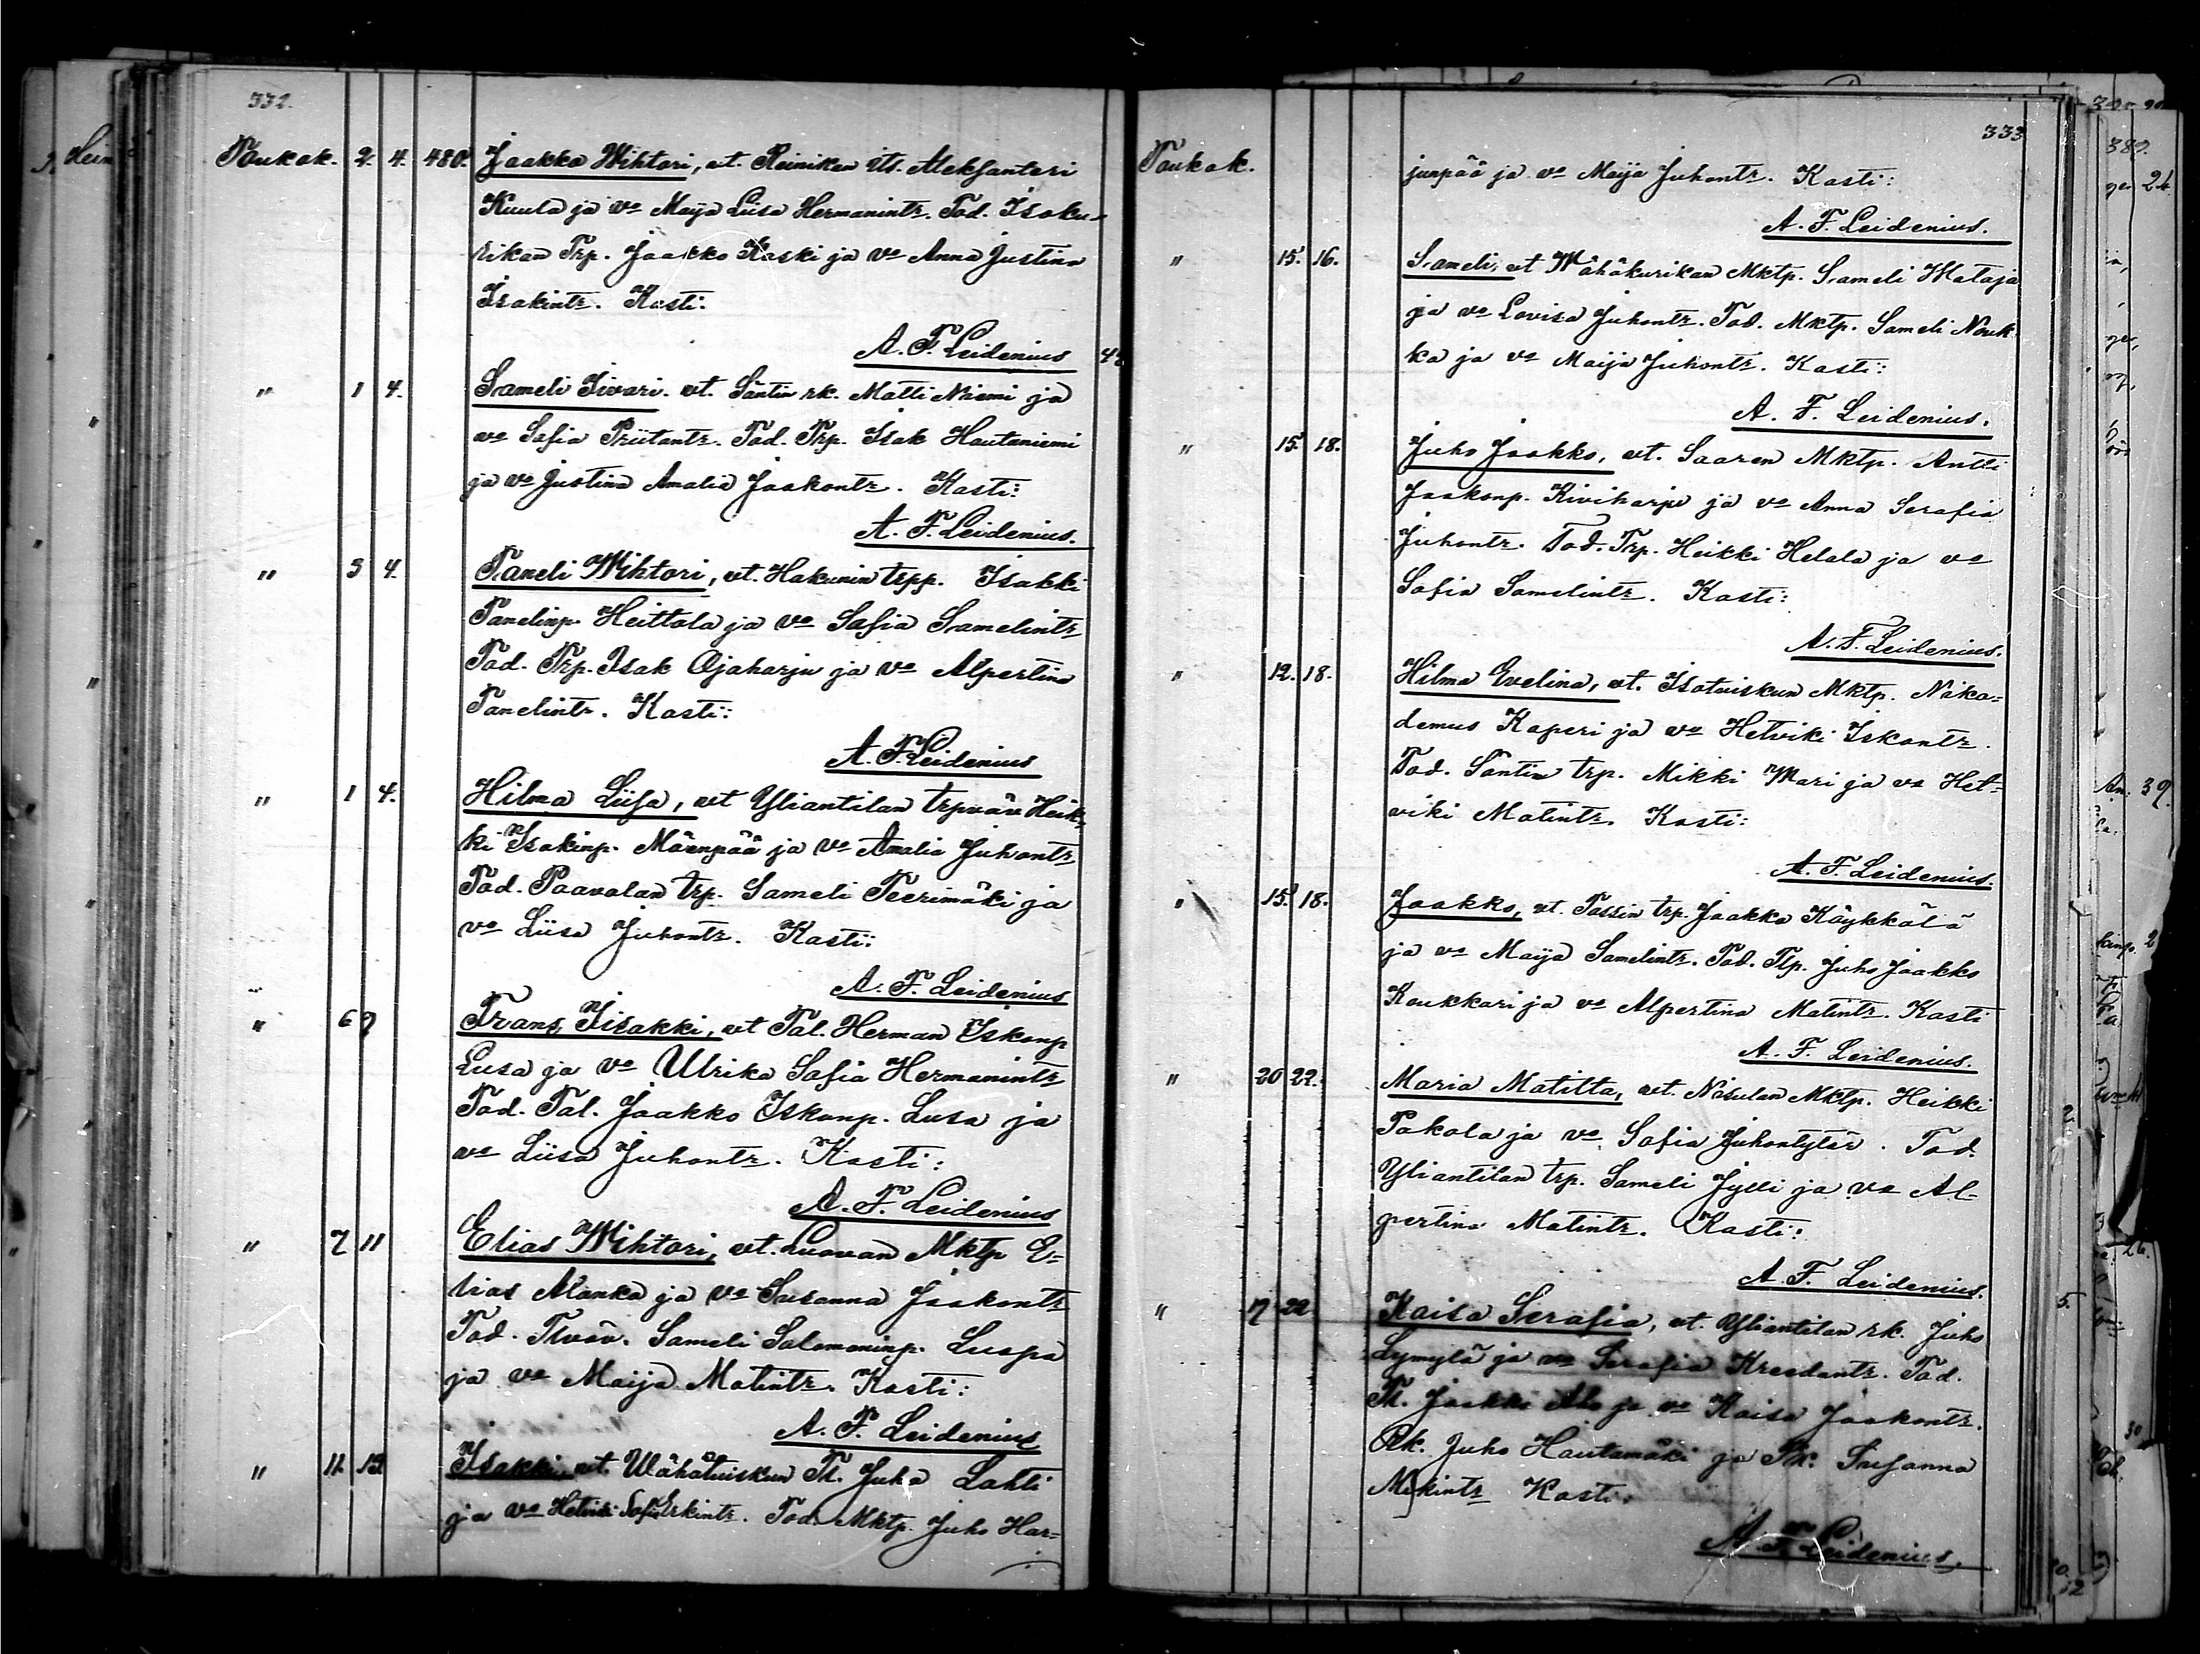 332.
Toukok. 2. 4. 480. Jaakko Wihtori, vt. Reinikan its. Aleksanteri
Kuula ja vo Maija Liisa Hermanintr. Tod. Isoku-
rikan Trp. Jaakko Koski ja vo Anna Justina
Isakintr. Kasti:
A. F. Leidenius
" 1 4. Sameli Iivari. vt. Säntin rk. Matti Niemi ja
vo Sofia Priitantr. Tod. Trp. Isak Hautaniemi
ja vo Justina Amalia Jaakontr. Kasti:
A. F. Leidenius.
" 3 4. Taneli Wihtori, vt. Hakunin trpp. Isakki
Tanelinp. Heittola ja vo Sofia Samelintr
Tod. Trp. Isak Ojaharju ja vo Alpertina
Tanelintr. Kasti:
A. F. Leidenius
" 1 4. Hilma Liisa, vt Yliantilan trpväv Heik-
ki Isakinp. Mäenpää ja vo Amalia Juhontr
Tod. Paavolan trp. Sameli Teerimäki ja
vo Liisa Juhontr. Kasti:
A. F. Leidenius
" 6 9 Frans Iisakki, vt Tal. Herman Iskonp
Lusa ja vo Ulrika Sofia Hermanintr
Tod. Tal. Jaakko Iskonp. Lusa ja
vo Liisa Juhontr. Kasti:
A. F. Leidenius
" 7 11 Elias Wihtori, vt. Luovan Mktp E-
lias Manka ja vo Susanna Jaakontr
Tod. Sameli Salomoninp. Luopa
ja vo Maija Matintr. Kasti:
A. F. Leidenius
" 11. 12 Isakki, vt. Wähätuiskun Tl. Juha Lahti
ja vo Hetviki Sofia Erkintr. Tod. Mktp. Juho Har-
333
Toukok. junpää ja vo Maija Juhontr. Kasti:
A. F. Leidenius.
" 15. 16. Sameli, vt Wähäkurikan Mktp. Sameli Mataja
ja vo Lovisa Juhontr. Tod. Mktp. Sameli Nouk-
ka ja vo Maija Juhontr. Kasti:
A. F. Leidenius.
" 15. 18. Juho Jaakko, vt. Saaren Mktp. Antti
Jaakonp. Kiviharju ja vo Anna Serafia
Juhontr. Tod. Trp. Heikki Helala ja vo
Sofia Samelintr. Kasti:
A. F. Leidenius.
" 12. 18. Hilma Evelina, vt. Isotuiskun Mktp. Niko-
demus Kaperi ja vo Hetviki Iskontr.
Tod. Säntin trp. Mikki Mari ja vo Het-
viki Matintr. Kasti:
A. F. Leidenius.
" 15. 18. Jaakko, vt. Passin trp. Jaakko Käykkälä
ja vo Maija Samelintr. Tod. Trp. Juho Jaakko
Koukkari ja vo Alpertina Matintr. Kasti
A. F. Leidenius.
" 20 22. Maria Matitta, vt. Nisulan Mktp. Heikki
Pokola ja vo Sofia Juhontytär. Tod.
Yliantilan trp. Sameli Jylli ja vo Al-
pertina Matintr. Kasti:
A. F. Leidenius.
" 17 22 Kaisa Serafia, vt. Yliantilan rk. Juho
Lymylä ja vo Serafia Kreedantr. Tod.
Tl. Jaakki Alo ja vo Kaisa Jaakontr.
Rk. Juho Hautamäki ja Pk. Susanna
Mikintr Kasti:
A. F. Leidenius.